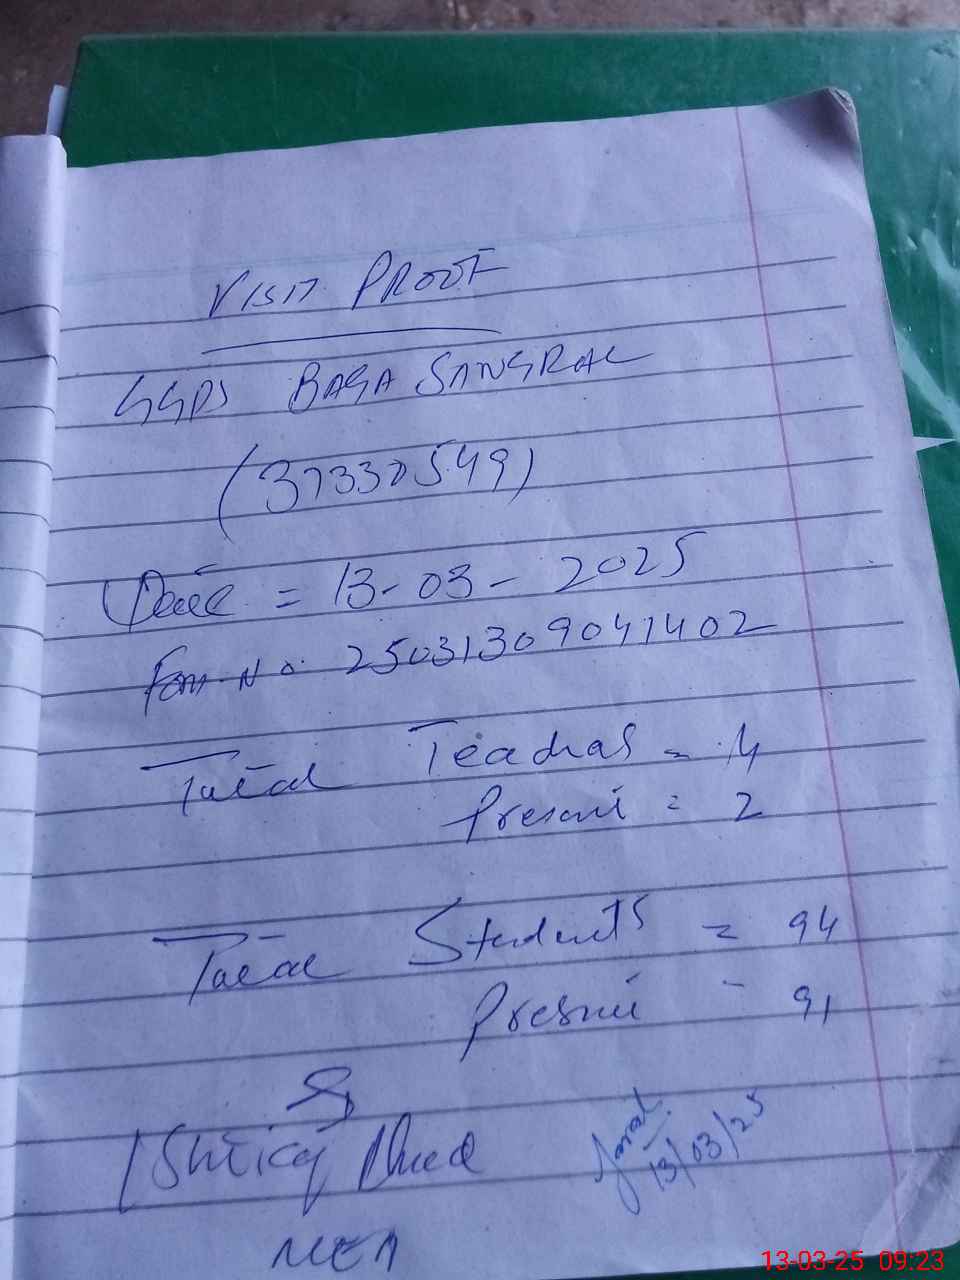 VISIT PROOF
GGPS BAGA SANGRAL
(37330549)
Date = 13-03-2025
Form No. 25031309041402
Total Teachers = 4
Present = 2
Total Students = 94
Present = 91
Ahmed
MEA
13/03/25
13-03-25 09:23